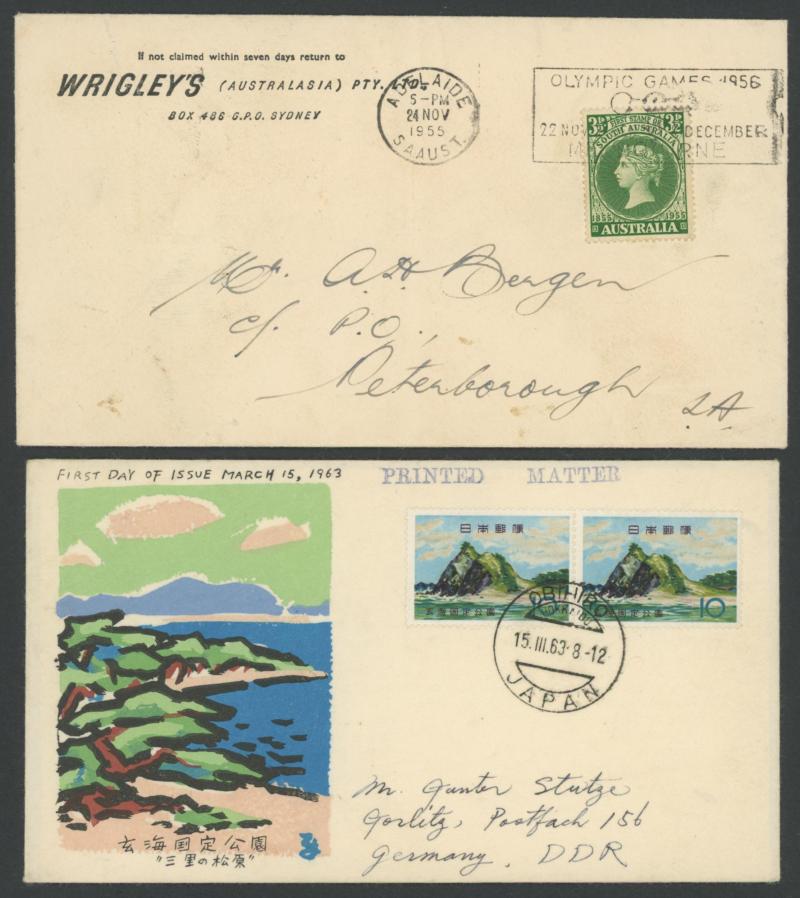 If not claimed within seven days return to
WRIGLEY'S (AUSTRALASIA) PTY. LTD.
BOX 486 G.P.O. SYDNEY
ADELAIDE
5-PM
24 NOV
1955
S.A AUST.
OLYMPIC GAMES 1956
22 NOV DECEMBER
3½D FIRST STAMP OF 3½D
SOUTH AUSTRALIA
1855 1955
AUSTRALIA
Mr. A.H. Bergen
c/. P.O.,
Peterborough
S.A
FIRST DAY OF ISSUE MARCH 15, 1963
PRINTED MATTER
日本郵便
日本郵便
玄海国定公園
国定公園 10
OBIHIRO
HOKKAIDO
15.III.63・8-12
JAPAN
玄海国定公園
"三里の松原"
Mr. Gunter Stutze
Gorlitz, Postfach 156
Germany, DDR